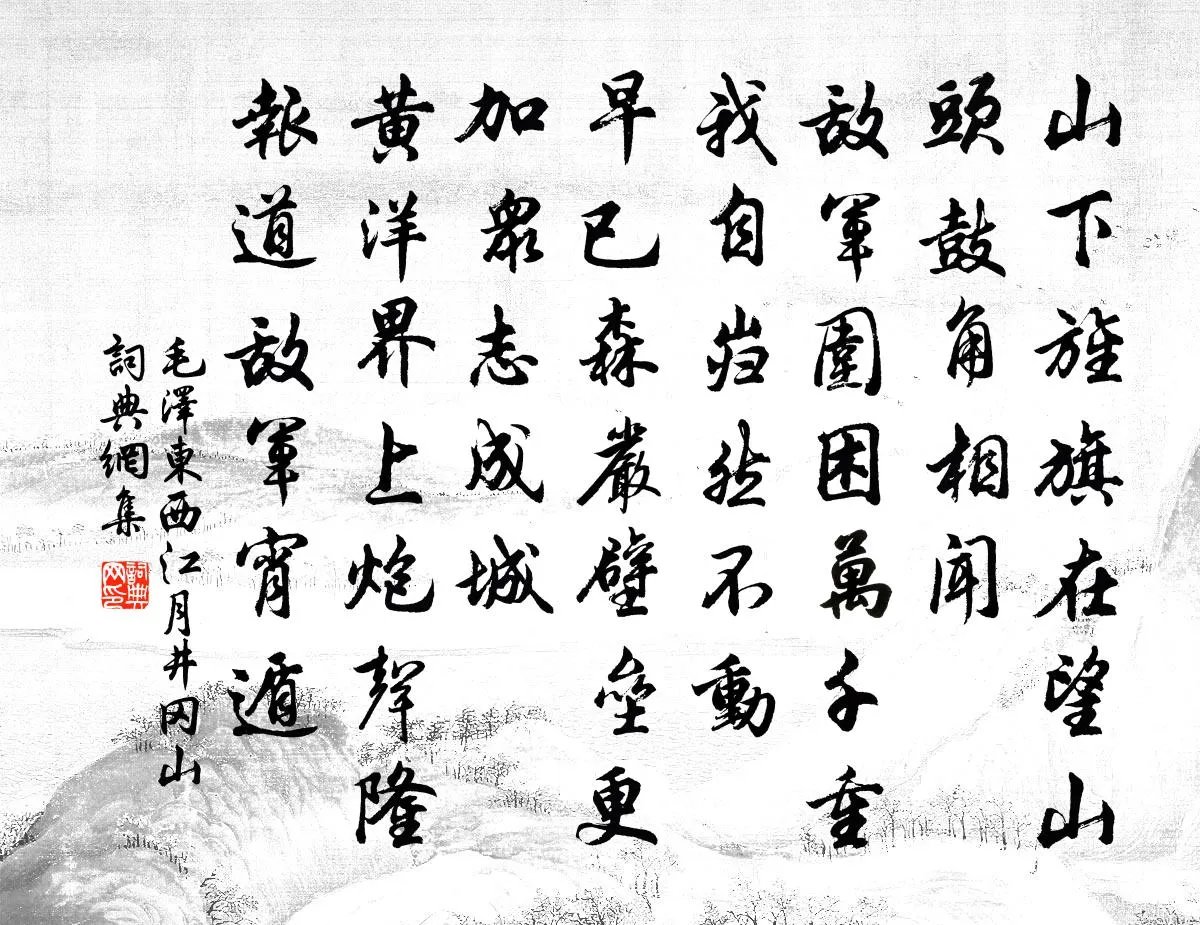 山下旌旗在望山
頭鼓角相聞
敌軍圍困萬千重
我自岿然不動
早已森嚴壁垒更
加眾志成城
黃洋界上炮聲隆
報道敌軍宵遁
毛澤東西江月井冈山
詞典網集
詞典网印